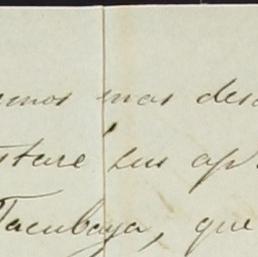 emos mas des
stare sus ap
Tacubaya, que